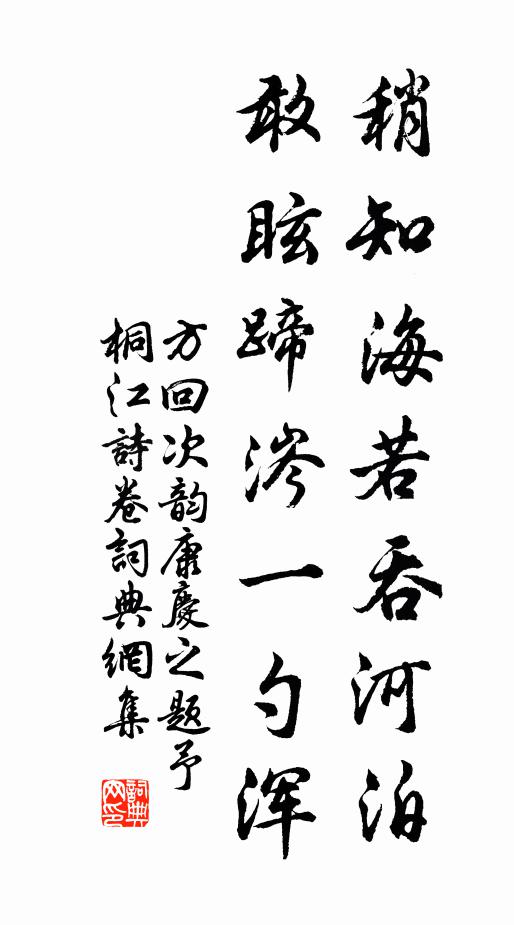 稍知海若吞河泊
敢眩蹄涔一勺浑
方回次韵康慶之题予
桐江詩卷詞典網集
詞典网印